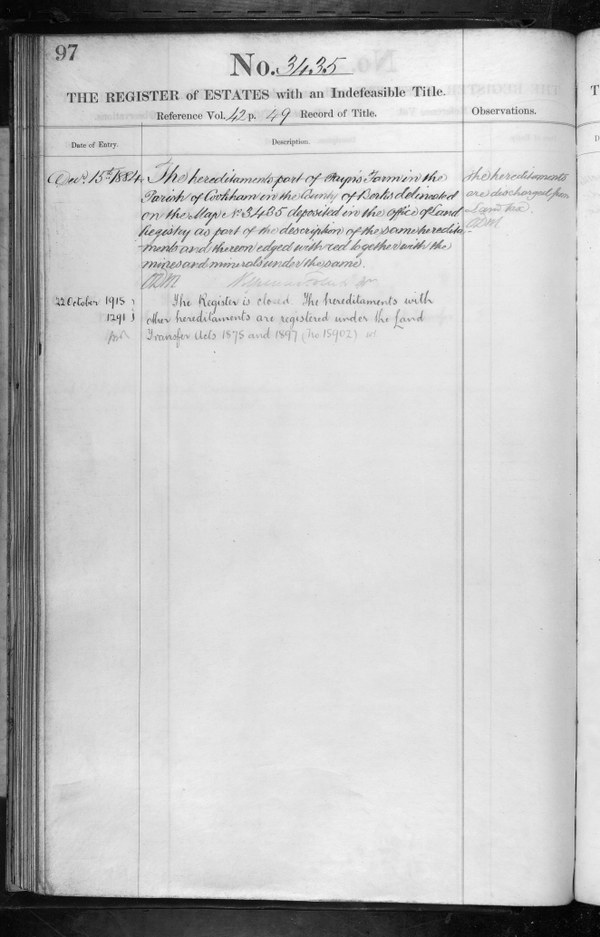 97
No. 3435
THE REGISTER of ESTATES with an Indefeasible Title.
Reference Vol. 42 p. 49 Record of Title.
Observations.
Date of Entry.
Description.
Decr. 15th 1884
The hereditaments part of Farm in the
Parish of Cookham in the County of Berks delineated
on the Map No. 3435 deposited in the office of Land
Registry as part of the description of the same heredita-
ments and thereon edged with red together with the
mines and minerals under the same.
The hereditaments
are discharged from
Land tax.
22 October 1915
1291
The Register is closed. The hereditaments with
other hereditaments are registered under the Land
Transfer Acts 1875 and 1897 (No. 15902)
T